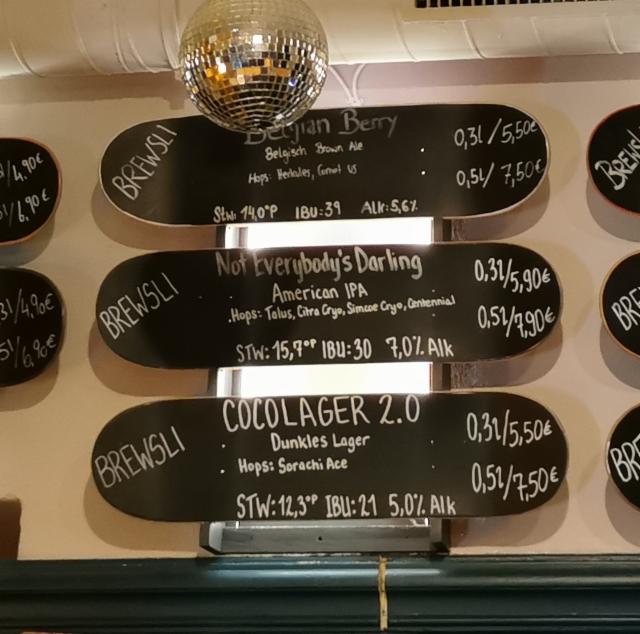 BREWSLI
Belgian Berry
Belgisch Brown Ale
Hops: Herkules, Comet US
Stw: 14,0°P IBU:39 Alk:5,6%
0,3l/5,50€
0,5l/7,50€
BREWSLI
Not Everybody's Darling
American IPA
Hops: Talus, Citra Cryo, Simcoe Cryo, Centennial
STW:15,7°P IBU:30 7,0% Alk
0,3l/5,90€
0,5l/7,90€
BREWSLI
COCOLAGER 2.0
Dunkles Lager
Hops: Sorachi Ace
STW:12,3°P IBU:21 5,0% Alk
0,3l/5,50€
0,5l/7,50€
/4,90€
/6,90€
3l/4,90€
5l/6,90€